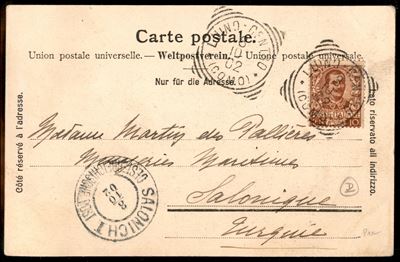 Carte postale.
Union postale universelle. — Weltpostverein. — Unione postale universale.
Nur für die Adresse.
Côté réservé à l'adresse.
Lato riservato all indirizzo.
Madame Martin des Pallières
Messageries Maritimes
Salonique
Turquie
(COMO)
10
SALONICH I